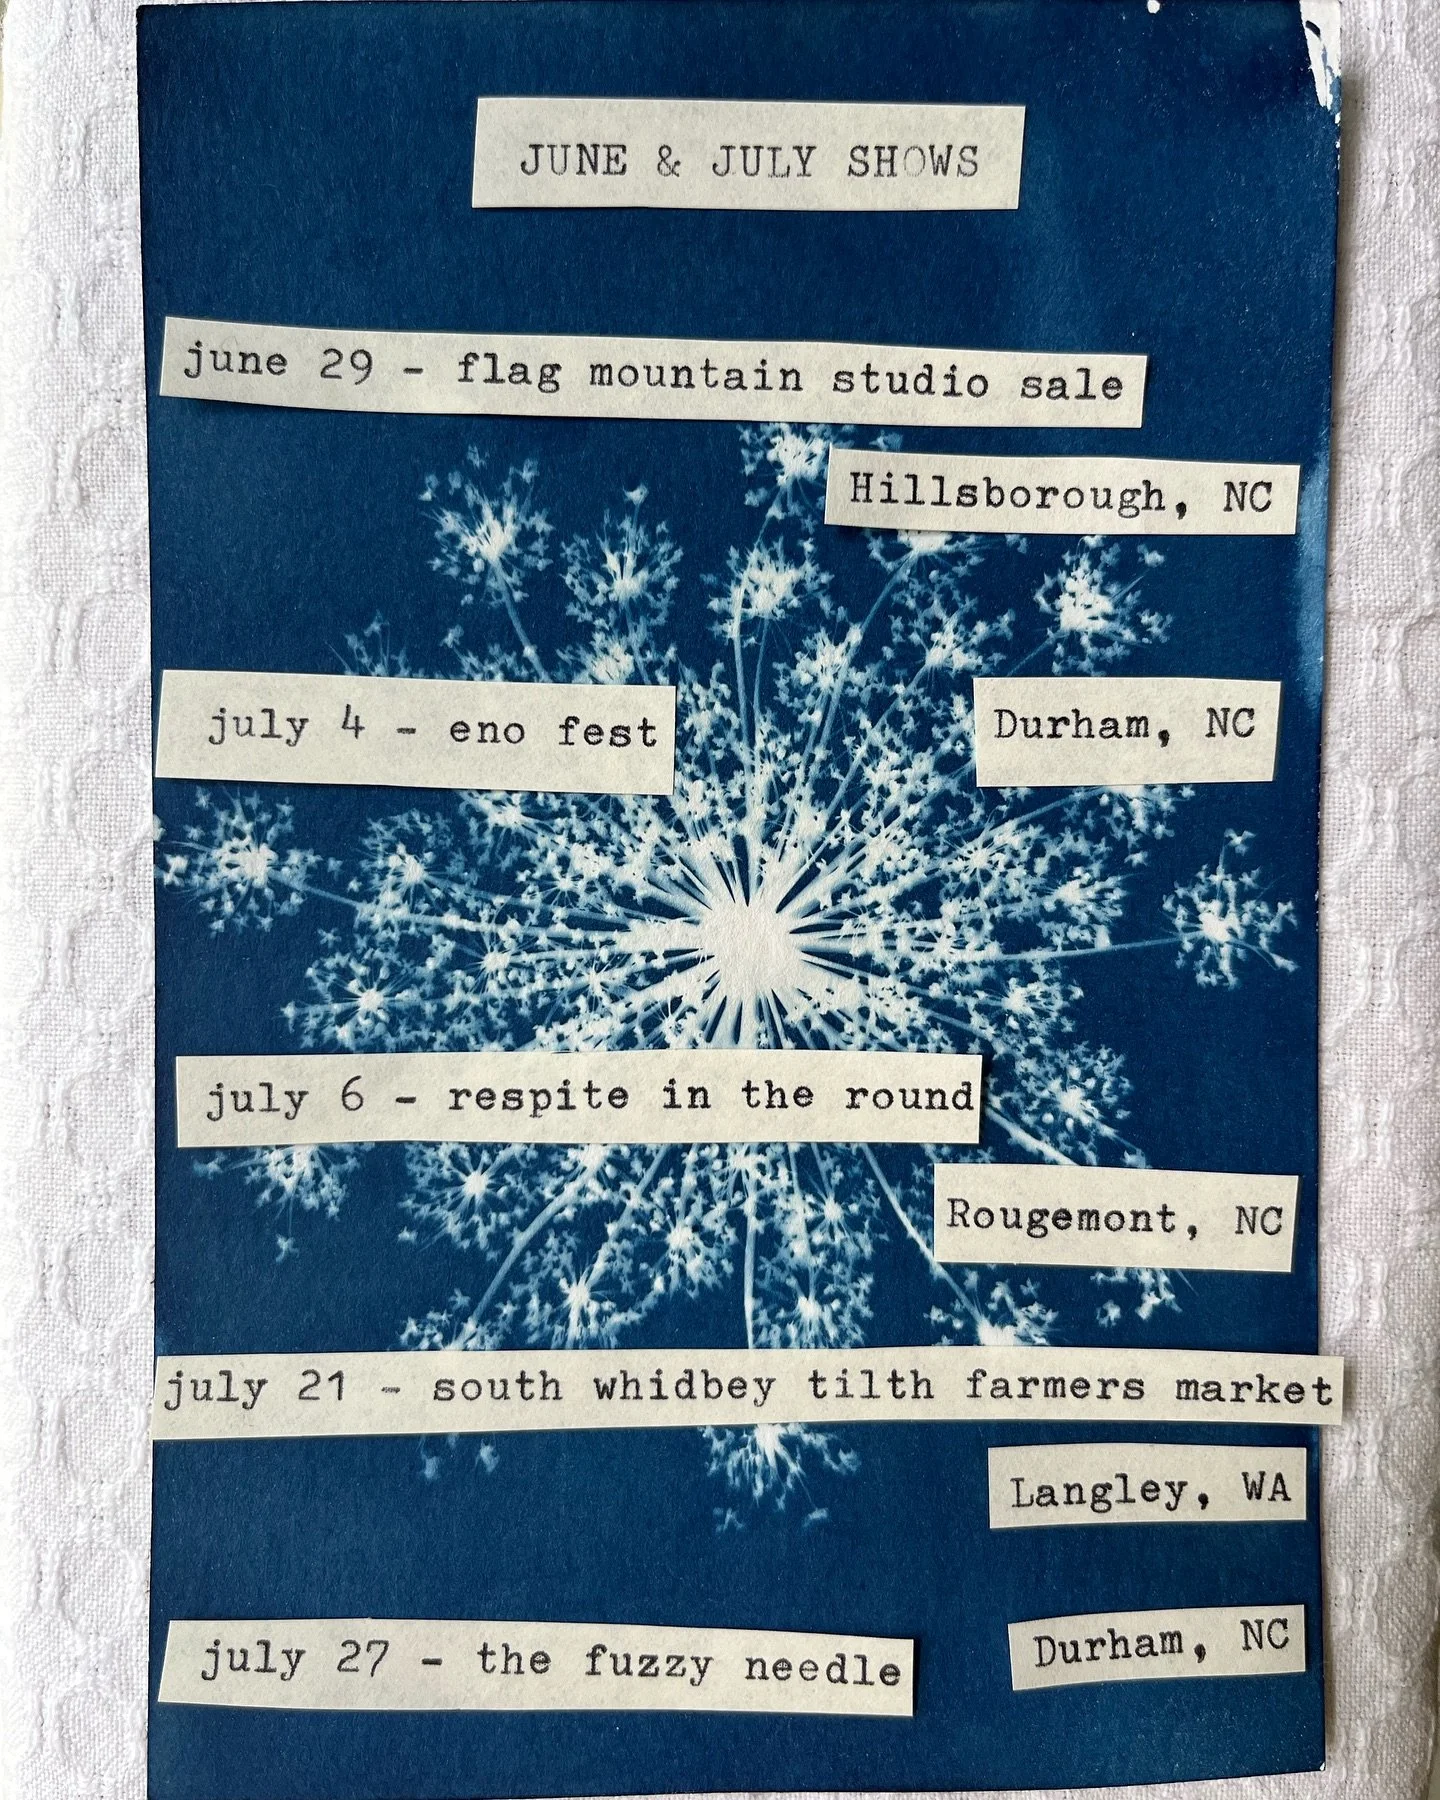 JUNE & JULY SHOWS
june 29 - flag mountain studio sale
Hillsborough, NC
july 4 - eno fest
Durham, NC
july 6 - respite in the round
Rougemont, NC
july 21 - south whidbey tilth farmers market
Langley, WA
july 27 - the fuzzy needle
Durham, NC